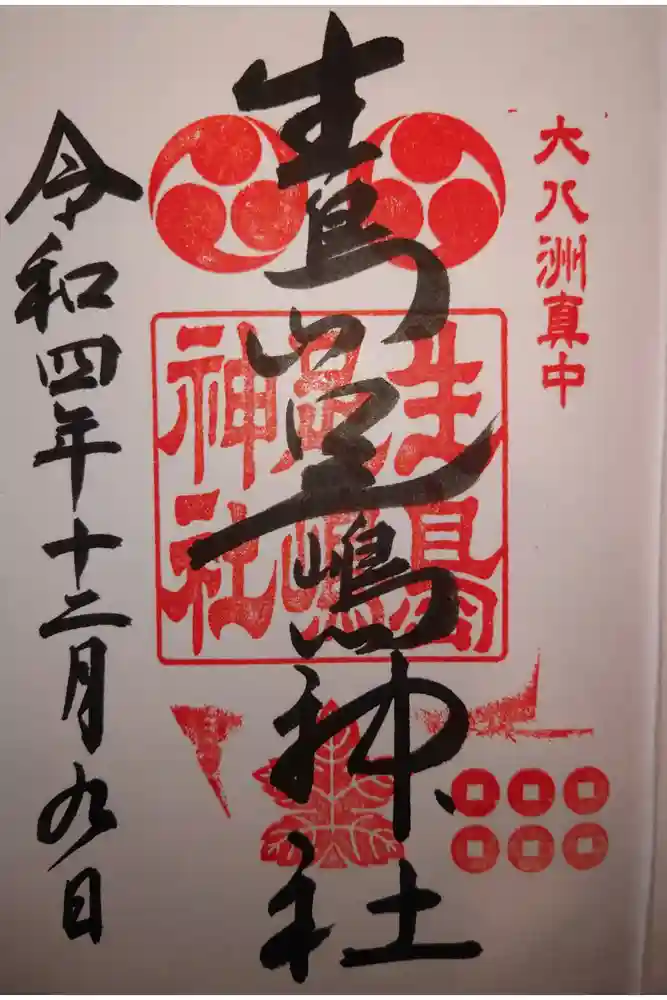 大八洲真中
生島足嶋神社
生島
足嶋
神社
令和四年十二月九日